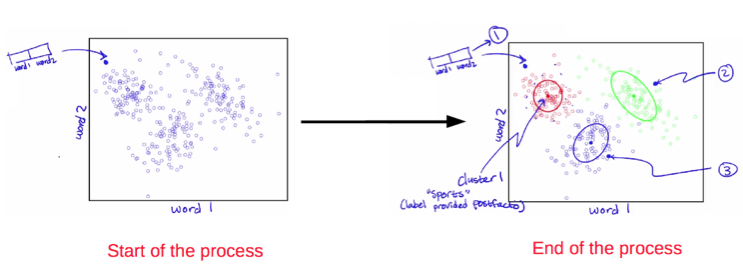 word1 word2
word 2
word 1
Start of the process
1
word1 word2
2
word 2
3
Cluster 1
"Sports"
(label provided postfacto)
word 1
End of the process